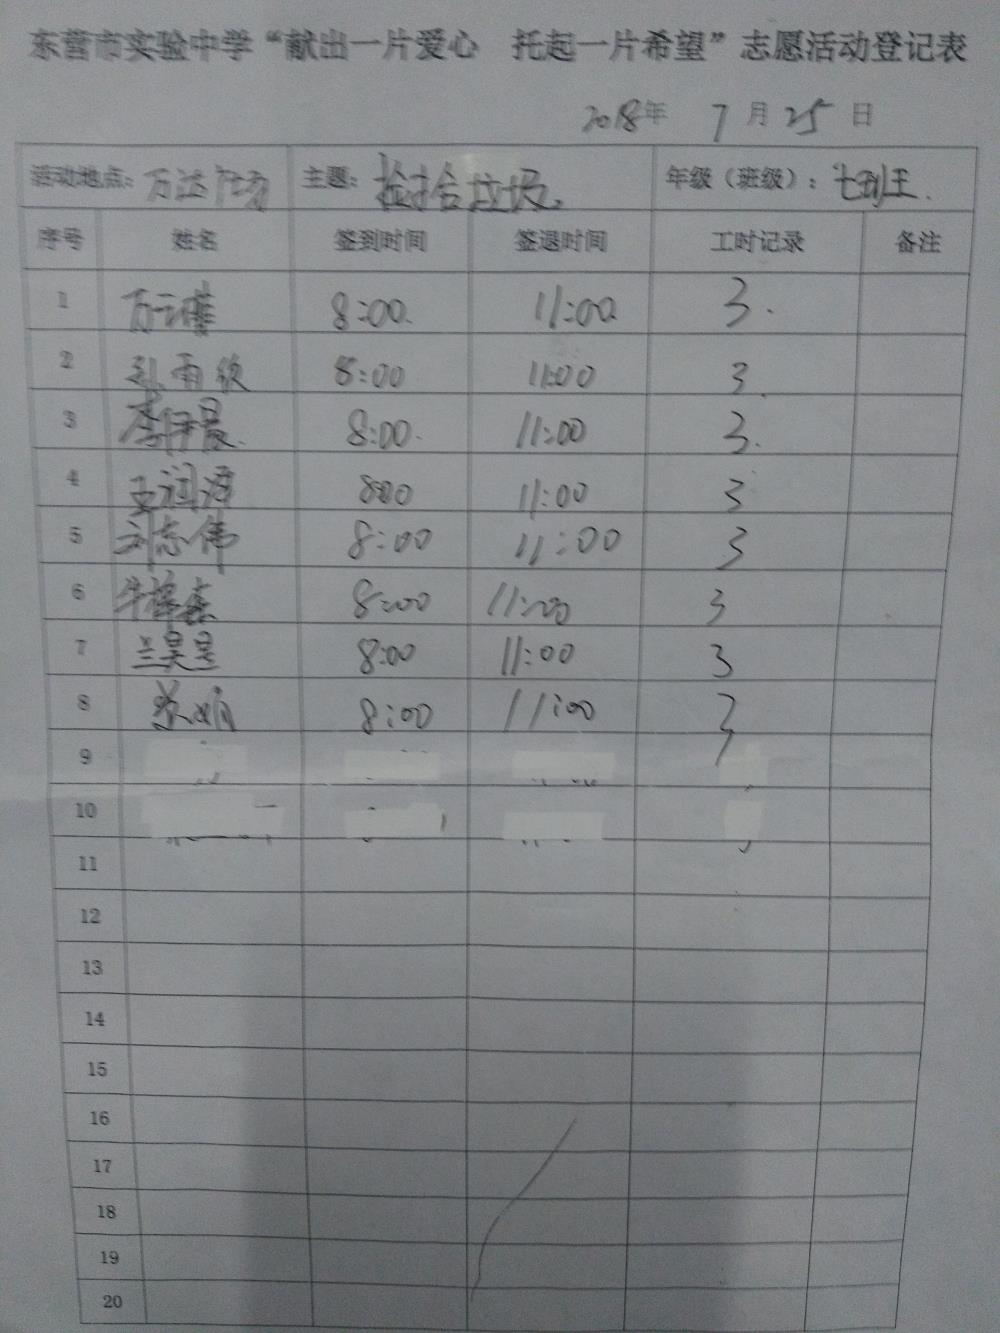 东营市实验中学“献出一片爱心 托起一片希望”志愿活动登记表
2018年 7月25日
活动地点：万达广场 主题：捡拾垃圾 年级（班级）：
序号 姓名 签到时间 签退时间 工时记录 备注
1 8:00 11:00 3
2 8:00 11:00 3
3 李伊晨 8:00 11:00 3
4 王润泽 8:00 11:00 3
5 刘志伟 8:00 11:00 3
6 8:00 11:00 3
7 兰昊昱 8:00 11:00 3
8 8:00 11:00 3
9
10
11
12
13
14
15
16
17
18
19
20